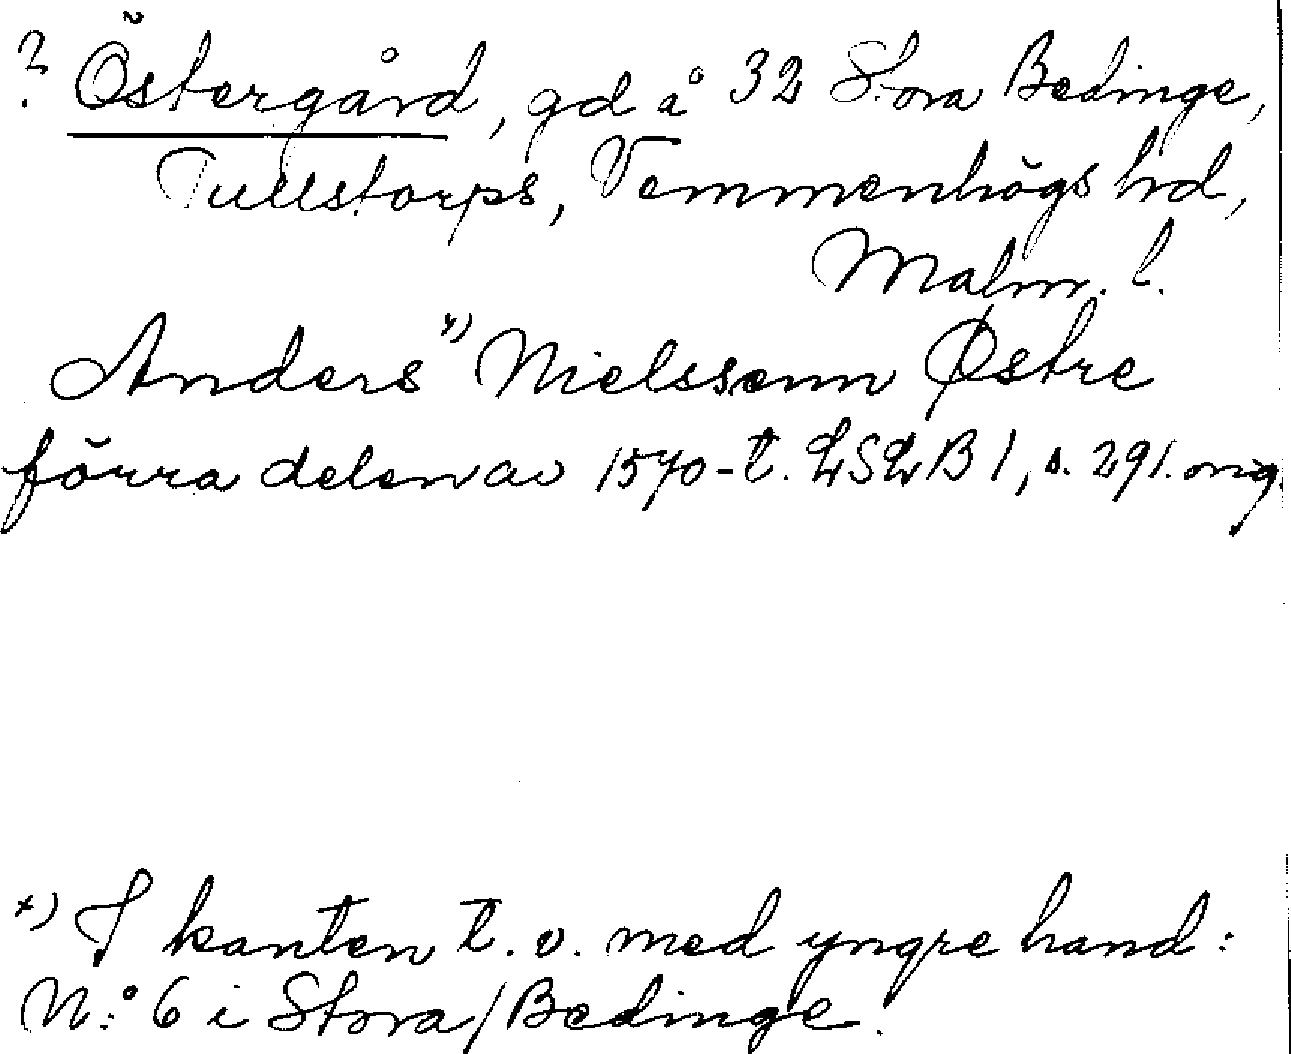 ? Östergård, gd å 32 Stora Bedinge,
Tullstorps, Vemmenhögs hd,
Malm. l.
Anders *) Nielssenn Østre
förra delen av 1570-t. LSLB 1, s. 291. orig.
*) I kanten t. v. med yngre hand:
N:o 6 i Stora / Bedinge.